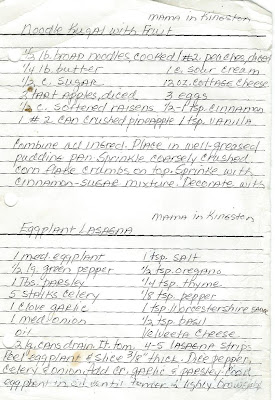 MAMA IN KINGSTON
Noodle Kugal with Fruit
1/2 lb. broad noodles, cooked 1 #2 can peaches, diced
1/4 lb. butter 1 c. sour cream
1/2 c. sugar 12 oz. cottage cheese
2 tart apples, diced 3 eggs
1/2 c. softened raisens 1/2-1 tsp. cinnamon
1 #2 can crushed pineapple 1 tsp. vanilla
Combine all ingred. Place in well-greased
pudding pan. Sprinkle coversely crushed
corn flake crumbs on top. Sprinkle with
cinnamon-sugar mixture. Decorate with
MAMA IN KINGSTON
Eggplant Lasagna
1 med. eggplant 1 tsp. salt
1/2 lg. green pepper 1/2 tsp. oregano
1 Tbs. parsley 1/4 tsp. thyme
5 stalks celery 1/8 tsp. pepper
1 clove garlic 1 tsp. Worcestershire
1 med. onion 1/2 tsp. basil
oil Velveeta cheese
2 lg. cans drain It. tom. 4-5 lasagna strips
Peel eggplant & slice 3/8" thick. Dice pepper,
celery & onion. Add cr. garlic & parsley. Cook
eggplant in oil until tender & lighly browned